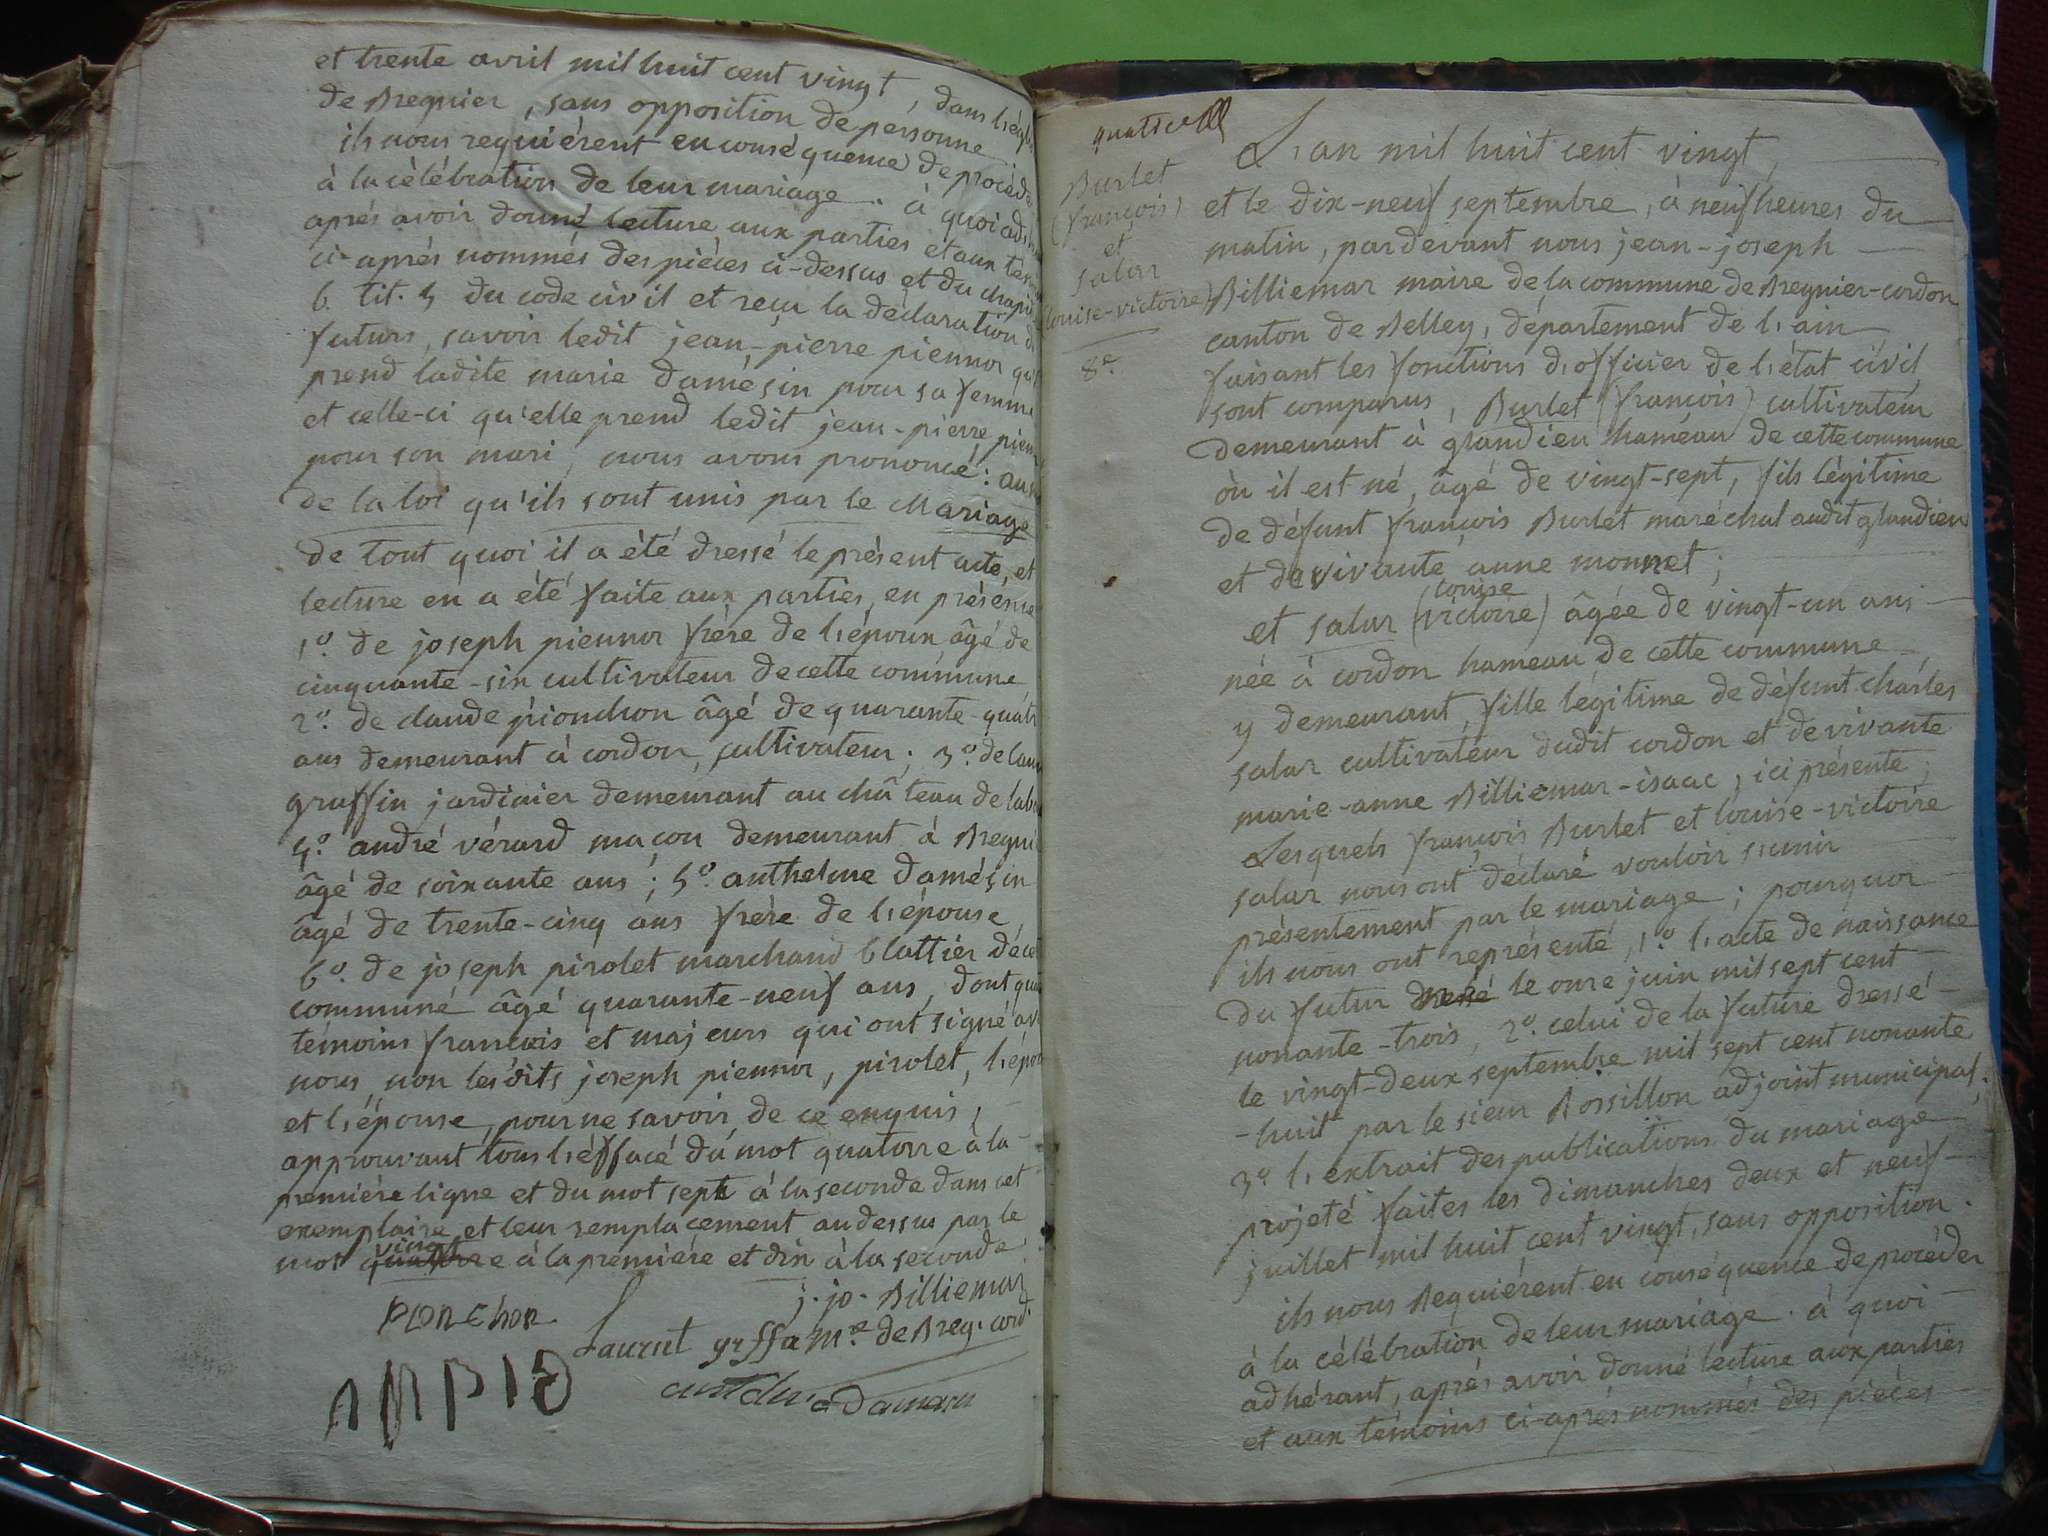 et trente avril mil huit cent vingt, dans l'égl
de Bregnier, sans opposition de personne.
ils nous requiérent en conséquence de procéde
à la célébration de leur mariage. à quoi adh
après avoir donné lecture aux parties et aux tém
ci-après nommés des piéces ci-dessus et du chapi
6. tit. 5 du code civil et reçu la déclaration d
futurs, savoir ledit jean-pierre piennor qu'
prend ladite marie damésin pour sa femme
et celle-ci qu'elle prend ledit jean-pierre pien
pour son mari, nous avons prononcé: au
de la loi qu'ils sont unis par le Mariage
de tout quoi il a été dressé le présent acte, et
lecture en a été faite aux parties, en présence
1º. de joseph piennor frère de l'époux âgé de
cinquante-six cultivateur de cette commune
2º. de claude pionchon âgé de quarante-quatr
ans demeurant à cordon, cultivateur; 3º. de lau
graffin jardinier demeurant au château de
4º. andré vérard maçon demeurant à Bregni
âgé de soixante ans; 5º. anthelme damésin
âgé de trente-cinq ans frère de l'épouse
6º. de joseph pirolet marchand blattier de ce
commune âgé quarante-neuf ans, dont qua
témoins francois et majeurs qui ont signé av
nous, non lesdits joseph piennor, pirolet, l'épo
et l'épouse, pour ne savoir de ce enquis,
approuvant tous l'éffacé du mot quatorze à la
première ligne et du mot sept à la seconde dans cet
exemplaire et leur remplacement au dessus par le
mot vingt à la première et dix à la seconde.
j. jo. Billiemaz
pionchon
Laurent graffa mre de Breg. cord.
damesin
quatre
Burlet
(françois)
et
salar
louise-victoire)
8e.
L'an mil huit cent vingt,
et le dix-neuf septembre, à neuf heures du
matin, pardevant nous jean-joseph
Billiemaz maire de la commune de Bregnier-cordon
canton de Belley, département de l'ain
faisant les fonctions d'officier de l'état civil
sont comparus, Burlet (françois) cultivateur
demeurant à glandieu hameau de cette commune
où il est né, âgé de vingt-sept, fils légitime
de défunt françois Burlet maréchal audit glandieu
et de vivante anne monnet;
louise
et salar (victoire) âgée de vingt-un ans
née à cordon hameau de cette commune
y demeurant, fille légitime de défunt charles
salar cultivateur dudit cordon et de vivante
marie-anne Billiemaz-isaac, ici présente;
Lesquels françois Burlet et louise-victoire
salar nous ont déclaré vouloir s'unir
présentement par le mariage; pourquoi
ils nous ont représenté, 1º. l'acte de naissance
du futur le onze juin mil sept cent
nonante-trois, 2º. celui de la future dressé
le vingt-deux septembre mil sept cent nonante
-huit par le sieur Rossillon adjoint municipal;
3º l'extrait des publications du mariage
projeté faites les dimanches deux et neuf
juillet mil huit cent vingt, sans opposition.
ils nous Requiérent en conséquence de procéder
à la célébration de leur mariage. à quoi
adhérant, après avoir donné lecture aux parties
et aux témoins ci-après nommés des piéces